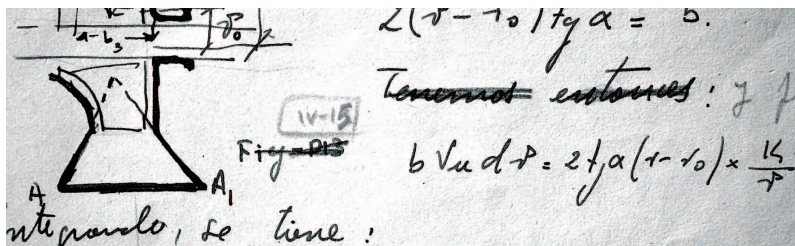 2(r-r₀) tg α = b.
a-b₃
r₀
Tenemos entonces: y
IV-15
Fig P13
b Vu dr = 2 tg α (r-r₀) × K/r
A A₁
integrando, se tiene: